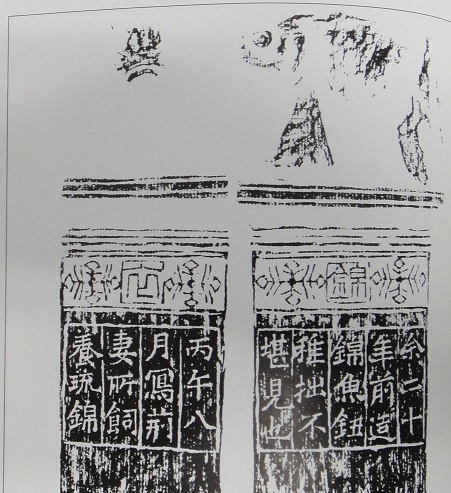 錦
余二十
年前造
錦魚鈕
稚拙不
堪見也
丙午八
月寫荊
妻所飼
養琉錦